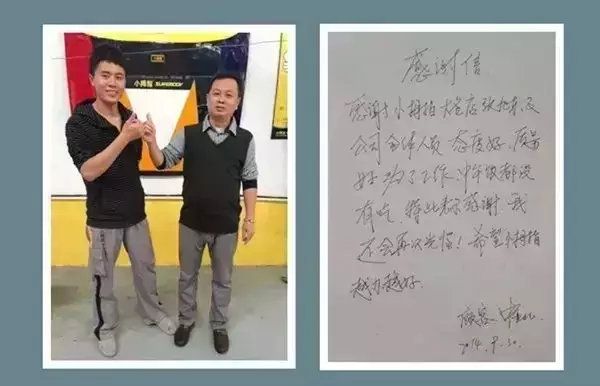 小拇指
感谢信
感谢小拇指大店张及
公司全体人员 态度好、质量
好 为了工作、中午饭都没
有吃 特此表示感谢. 我
还会再次光临! 希望小拇指
越办越好.
顾客:
2014.9.30